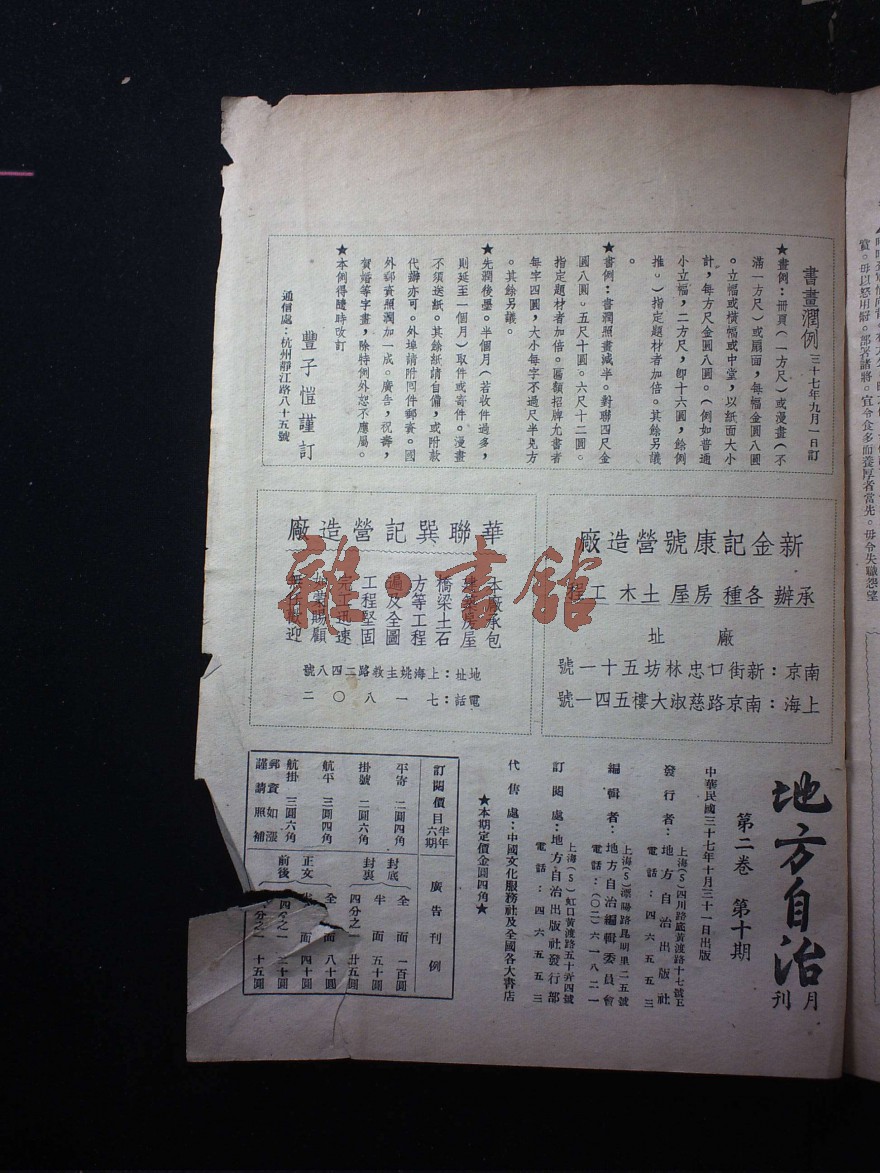 書畫潤例 三十七年九月一日訂
★畫例：冊頁（一方尺）或漫畫（不
滿一方尺）或扇面，每幅金圓八圓
。立幅或橫幅或中堂，以紙面大小
計，每方尺金圓八圓。（例如普通
小立幅，二方尺，即十六圓，餘例
推。）指定題材者加倍。其餘另議
。
★書例：書潤照畫減半。對聯四尺金
圓八圓。五尺十圓。六尺十二圓。
指定題材者加倍。匾額招牌尤書者
每字四圓，大小每字不過尺半見方
。其餘另議。
★先潤後墨。半個月（若收件過多，
則延至一個月）取件或寄件。漫畫
不須送紙。其餘紙請自備，或附款
代辦亦可。外埠請附回件郵資。國
外郵資照潤加一成。廣告，祝壽，
賀婚等字畫，除特例外恕不應屬。
★本例得隨時改訂
豐子愷謹訂
通信處：杭州靜江路八十五號
新金記康號營造廠
承辦各種房屋土木工程
廠址
南京：新街口忠林坊五十一號
上海：南京路慈淑大樓五四一號
華聯巽記營造廠
本廠承包
建築房屋
橋梁土石
方等工程
遍及全圖
工程堅固
完工迅速
如蒙賜顧
無任歡迎
地址：上海姚主教路二四八號
電話：七一八〇二
地方自治
月刊
第二卷 第十期
中華民國三十七年十月三十一日出版
發行者：地方自治出版社
上海(5)四川路底黃渡路十七號E
電話：四六五五三
編輯者：地方自治編輯委員會
上海(5)溧陽路昆明里二五號
電話：(〇二)六一八二一
訂閱處：地方自治出版社發行部
上海(5)虹口黃渡路五十弄四號
電話：四六五五三
代售處：中國文化服務社及全國各大書店
★本期定價金圓四角★
訂閱價目 半年六期
平寄 二圓四角
掛號 二圓六角
航平 三圓四角
航掛 三圓六角
郵資如漲
謹請照補
廣告刊例
封底 封裏
全面 一百圓
半面 五十圓
四分之一 廿五圓
正文前後
全面 八十圓
半面 四十圓
四分之一 二十圓
分之一 十五圓
賞。毋以怒用罰。部署諸將。宜令食多而養厚者當先。毋令失職怨望
雜·書館